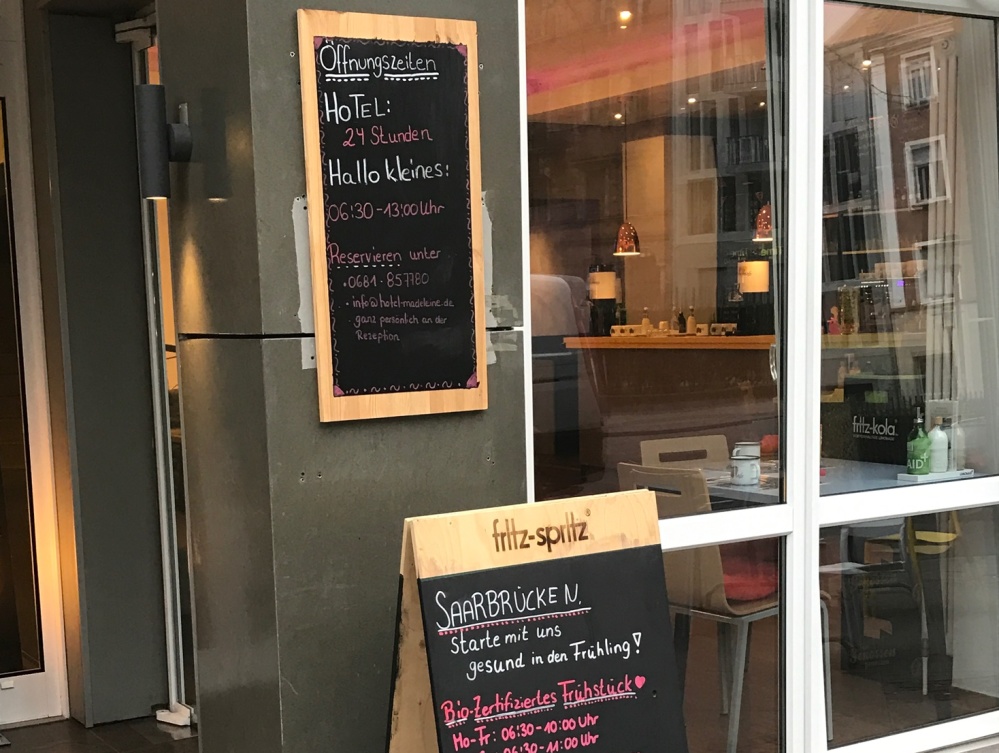 Öffnungszeiten
HOTEL:
24 Stunden
Hallo kleines:
06:30-13:00 Uhr
Reservieren unter
• 0681-857780
• info@hotel-madeleine.de
• ganz persönlich an der
Rezeption
fritz-kola
AID
fritz-spritz
SAARBRÜCKEN,
starte mit uns
gesund in den Frühling!
Bio-Zertifiziertes Frühstück
Mo-Fr: 06:30-10:00 Uhr
06:30-11:00 Uhr